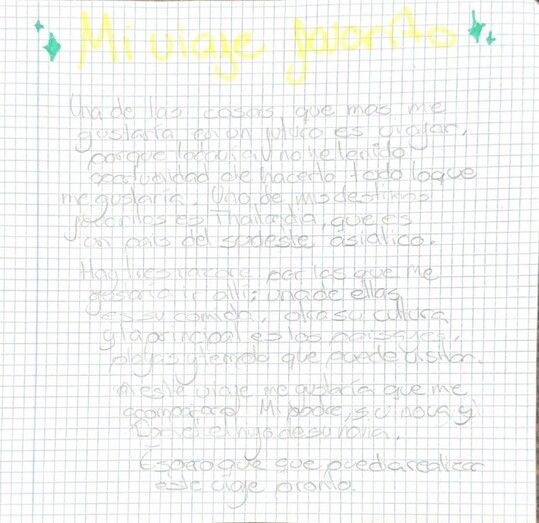 Mi viaje favorito
Una de las cosas que mas me
gustaría en un futuro es viajar,
porque todavía no he tenido
oportunidad de hacerlo todo lo que
me gustaría. Uno de mis destinos
favoritos es Thailandia, que es
un país del sudeste asiático.
Hay tres razone por las que me
gustaría ir allí; una de ellas
es su comida, otra su cultura
y la principal es los paisajes,
playas y templo que puede visitar.
A este viaje me gustaría que me
acompañara Mi padre, su novia y
el hijo de su novia.
Espero que que pueda realizar
este viaje pronto.